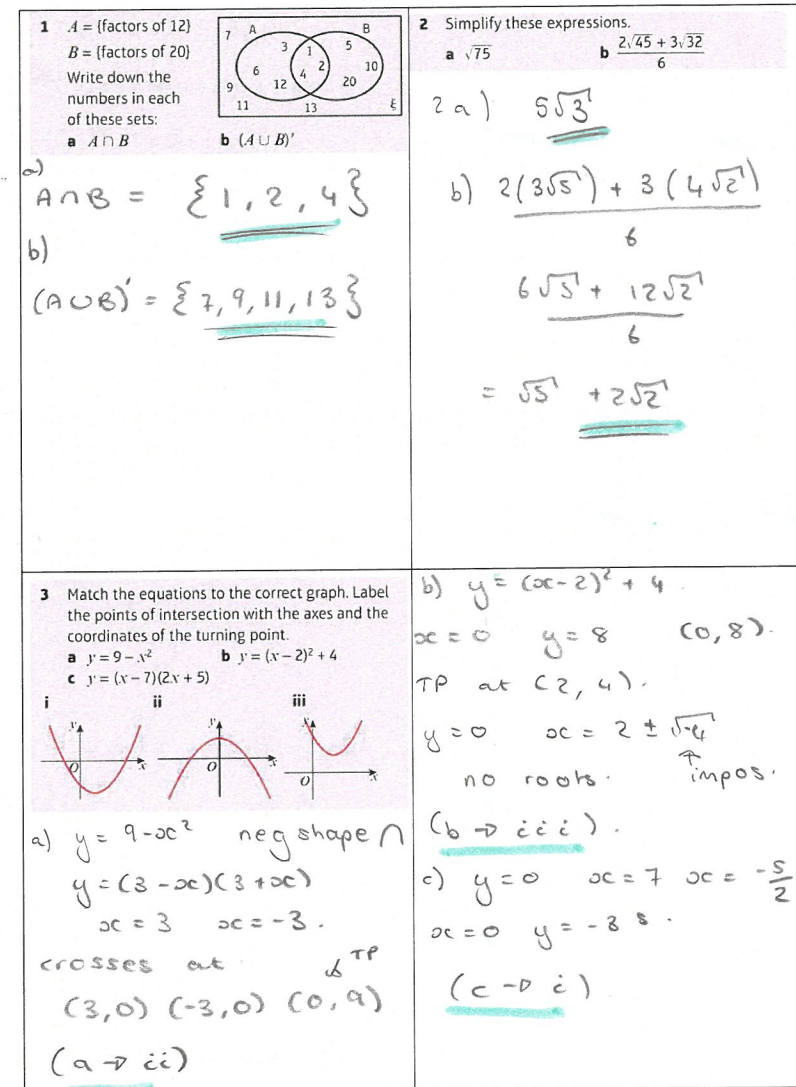 1 A = {factors of 12}
B = {factors of 20}
Write down the
numbers in each
of these sets:
a A ∩ B b (A ∪ B)′
7 A B
3 1 5
6 4 2 10
9 12 20
11 13 ξ
a)
A∩B = {1, 2, 4}
b)
(A∪B)′ = {7, 9, 11, 13}
2 Simplify these expressions.
a √75 b (2√45 + 3√32)/6
2 a) 5√3
b) (2(3√5) + 3(4√2))/6
(6√5 + 12√2)/6
= √5 + 2√2
3 Match the equations to the correct graph. Label
the points of intersection with the axes and the
coordinates of the turning point.
a y = 9 – x² b y = (x – 2)² + 4
c y = (x – 7)(2x + 5)
i ii iii
y y y
O x O x O x
a) y = 9-x² neg shape ∩
y = (3-x)(3+x)
x = 3 x = -3.
crosses at TP
(3,0) (-3,0) (0,9)
(a → ii)
b) y = (x-2)² + 4.
x = 0 y = 8 (0,8).
TP at (2,4).
y = 0 x = 2 ± √-4
no roots. ↑ impos.
(b → iii).
c) y = 0 x = 7 x = -5/2
x = 0 y = -35.
(c → i)